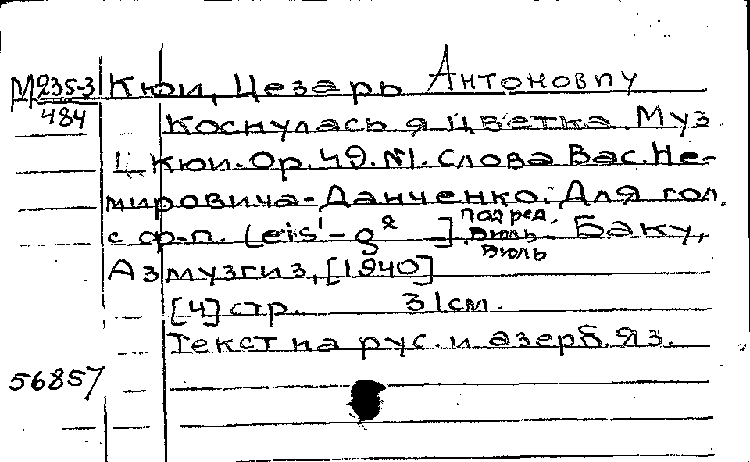 М235-3 Кюи, Цезарь Антонови
484 Коснулась я цветка. Муз.
Ц. Кюи. Ор. 49. №1. Слова Вас. Не-
мировича-Данченко. Для гол.
с ф-п. [eis¹-g² ] под ред. Баку,
Азмузгиз, [1940]
[4] стр. 31 см.
Текст на рус. и азерб. яз.
56857